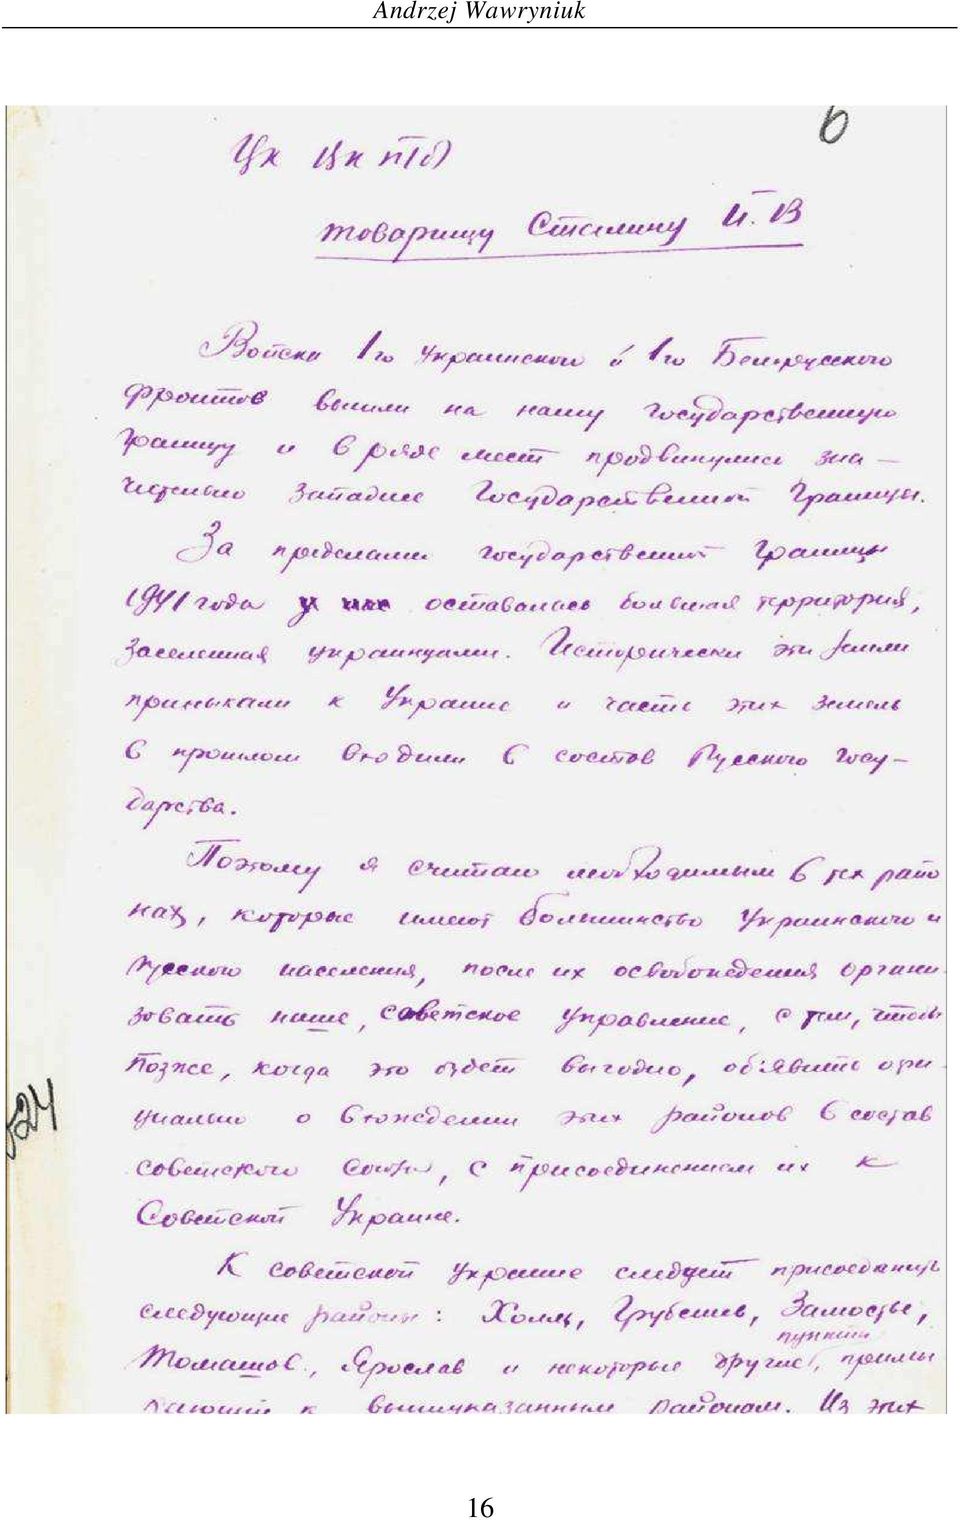 Andrzej Wawryniuk
6
товарищу Сталину И.В
Войска 1го Украинского и 1го Белорусского
фронтов вышли на нашу государственную
границу и в ряде мест продвинулись зна-
чительно западнее Государственной границы.
За пределами государственной границы
1941 года у нас оставалась большая территория,
заселенная украинцами. Исторически эти земли
примыкали к Украине и часть этих земель
в прошлом входили в состав Русского Госу-
дарства.
Поэтому я считаю необходимым в тех райо
нах, которые имеют большинство Украинского и
Русского населения, после их освобождения органи
зовать наше, советское управление, с тем, чтобы
позже, когда это будет выгодно, об'явить офи
циально о вхождении этих районов в состав
советского Союза, с присоединением их к
Советской Украине.
К советской Украине следует присоединить
следующие районы: Холм, Грубешев, Замостье,
пункты
Томашов, Ярослав и некоторые другие, примы
кающие к вышеуказанным районам. Из этих
24
16